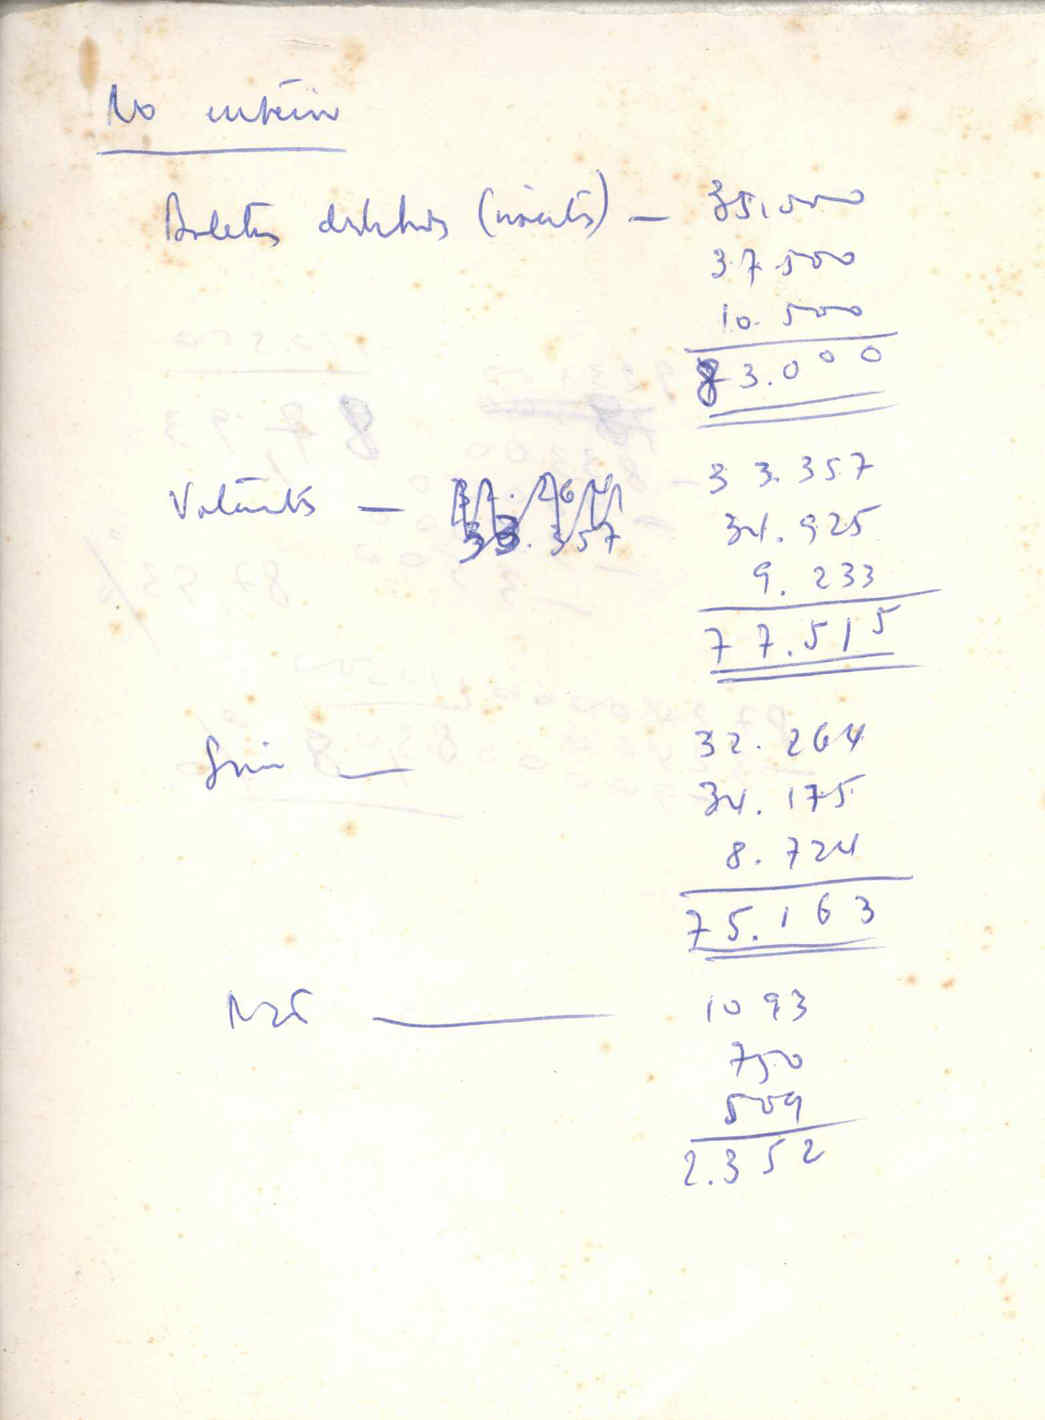 No
Boletos — 35.000
37.500
10.500
83.000
Votantes — 33.357
33.357
34.925
9.233
77.515
Sim — 32.264
34.175
8.724
75.163
Não — 1093
750
509
2.352